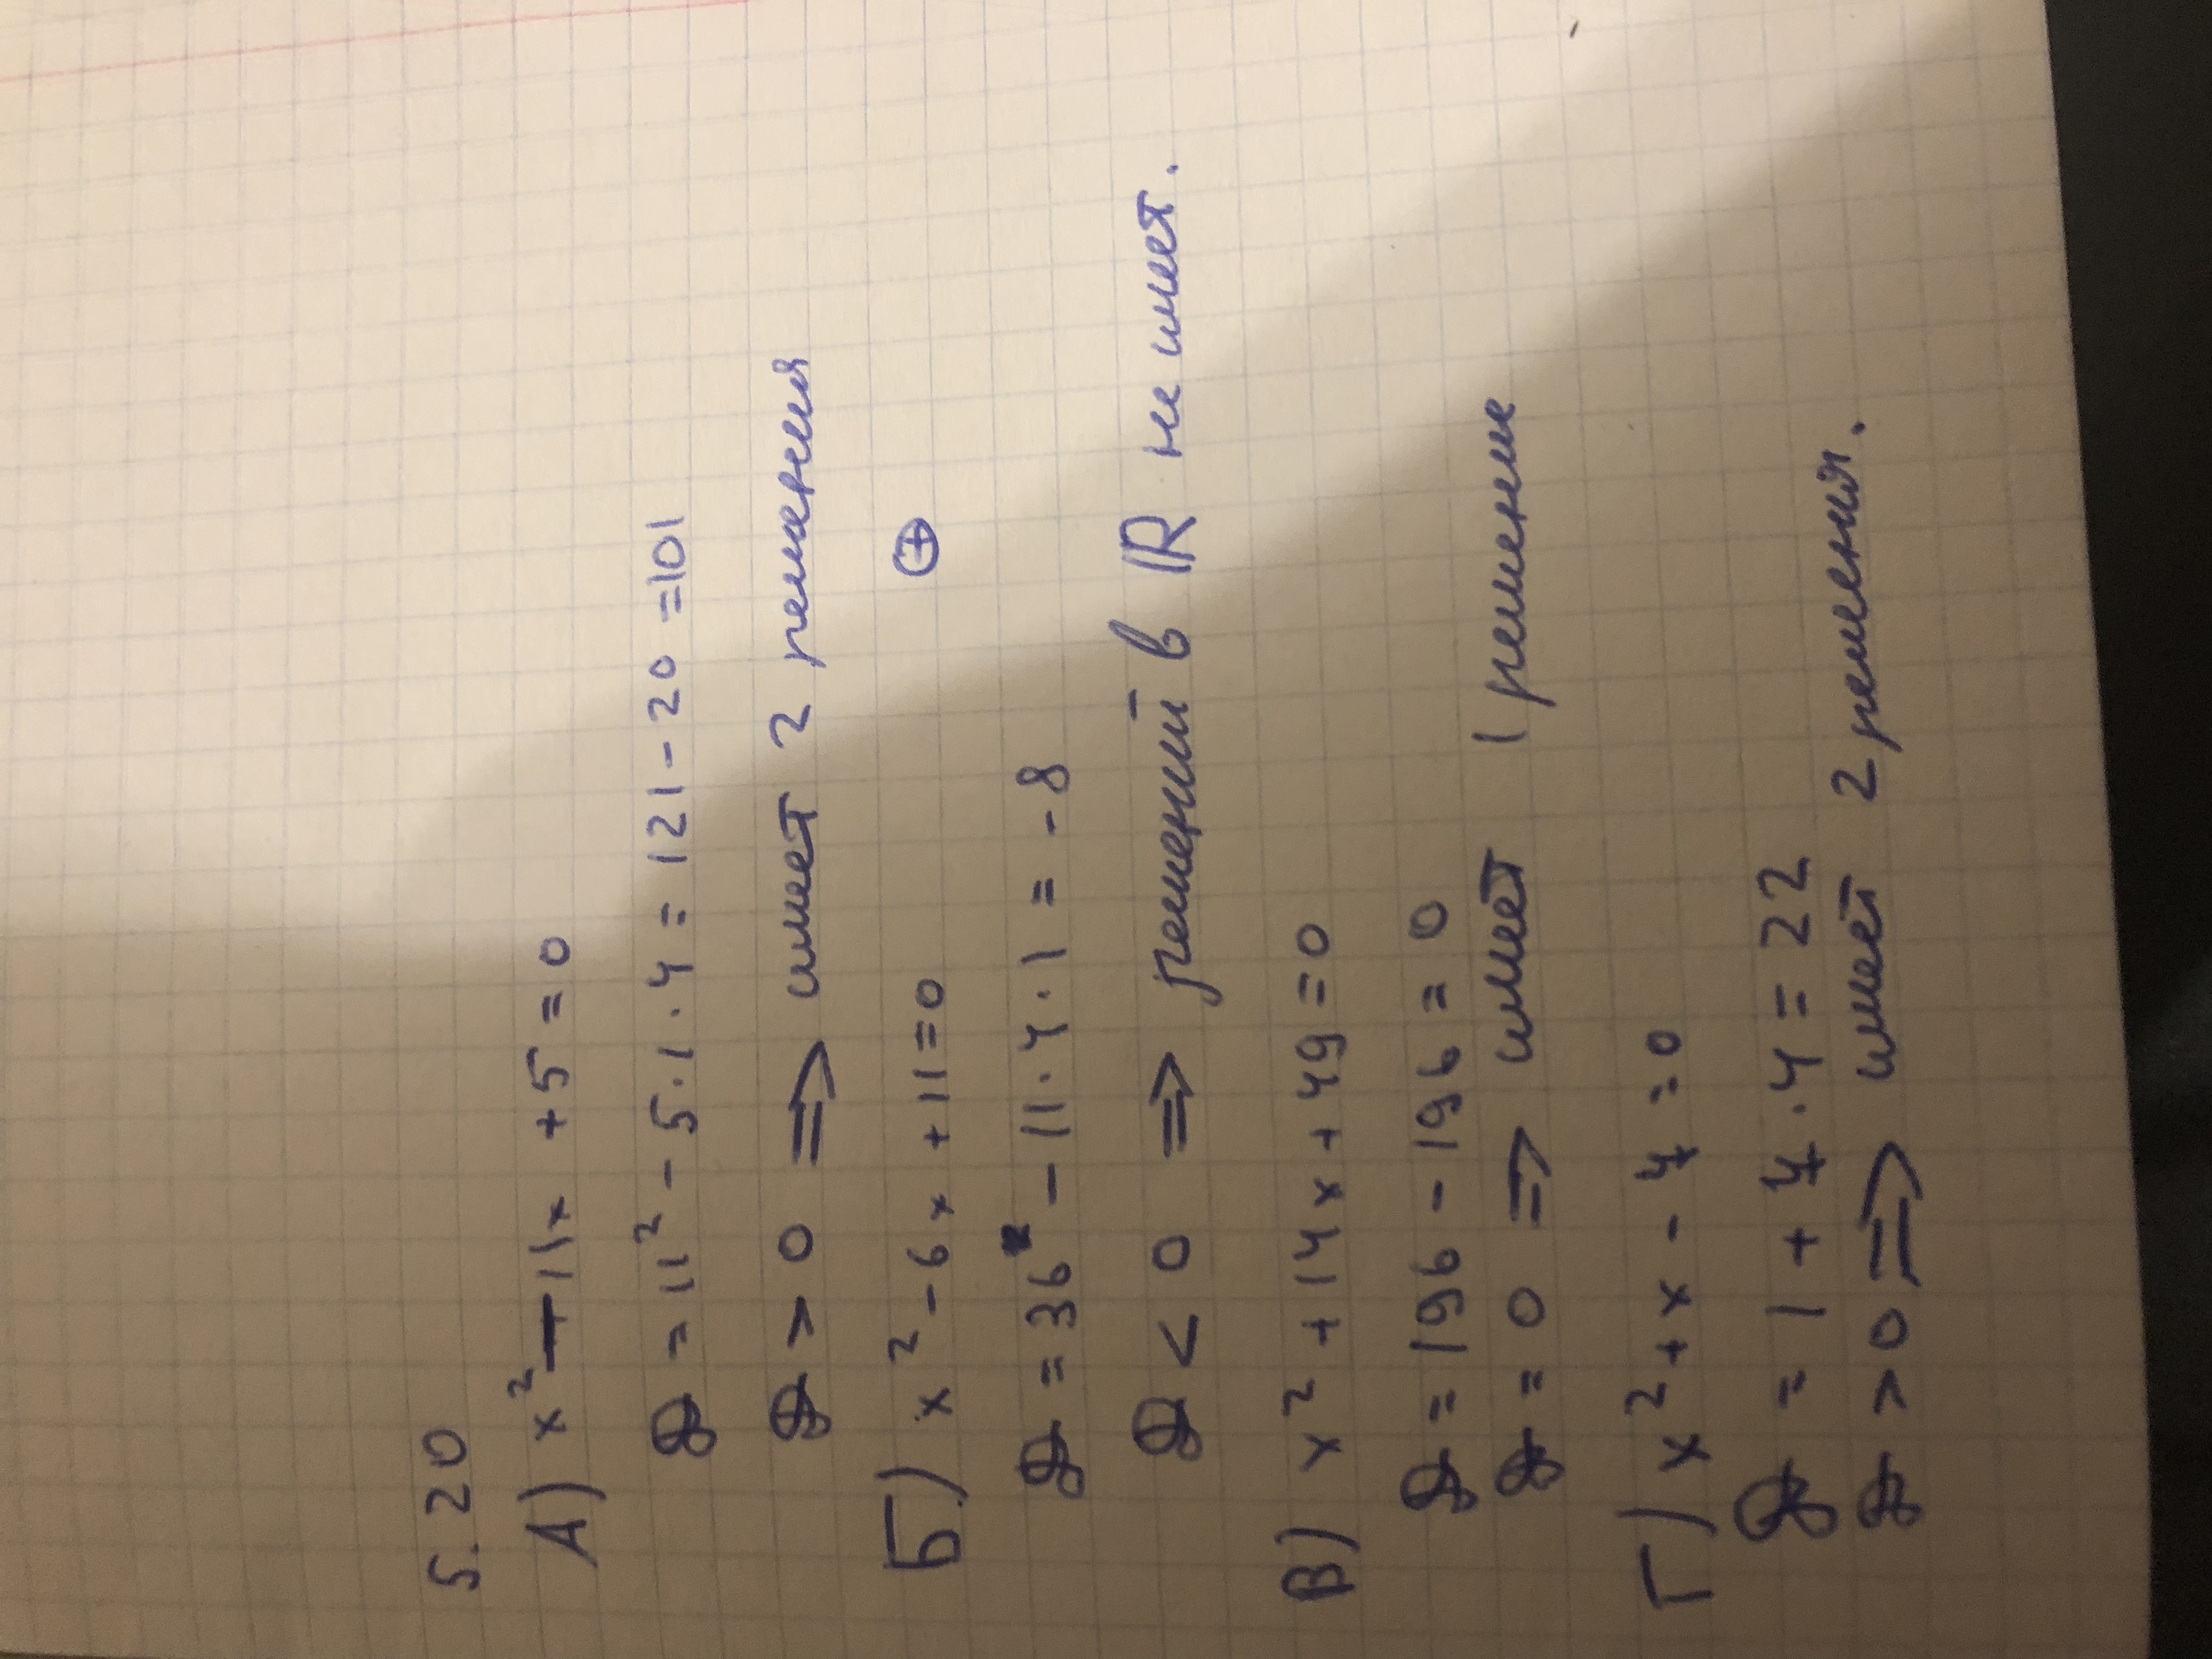 5.20
А) x² - 11x + 5 = 0
D = 11² - 5·1·4 = 121 - 20 = 101
D > 0 ⟹ имеет 2 решения
Б) x² - 6x + 11 = 0 ⊕
D = 36 - 11·4·1 = -8
D < 0 ⟹ решений в ℝ не имеет.
В) x² + 14x + 49 = 0
D = 196 - 196 = 0
D = 0 ⟹ имеет 1 решение
Г) x² + x - 4 = 0
D = 1 + 4·4 = 22
D > 0 ⟹ имеет 2 решения.